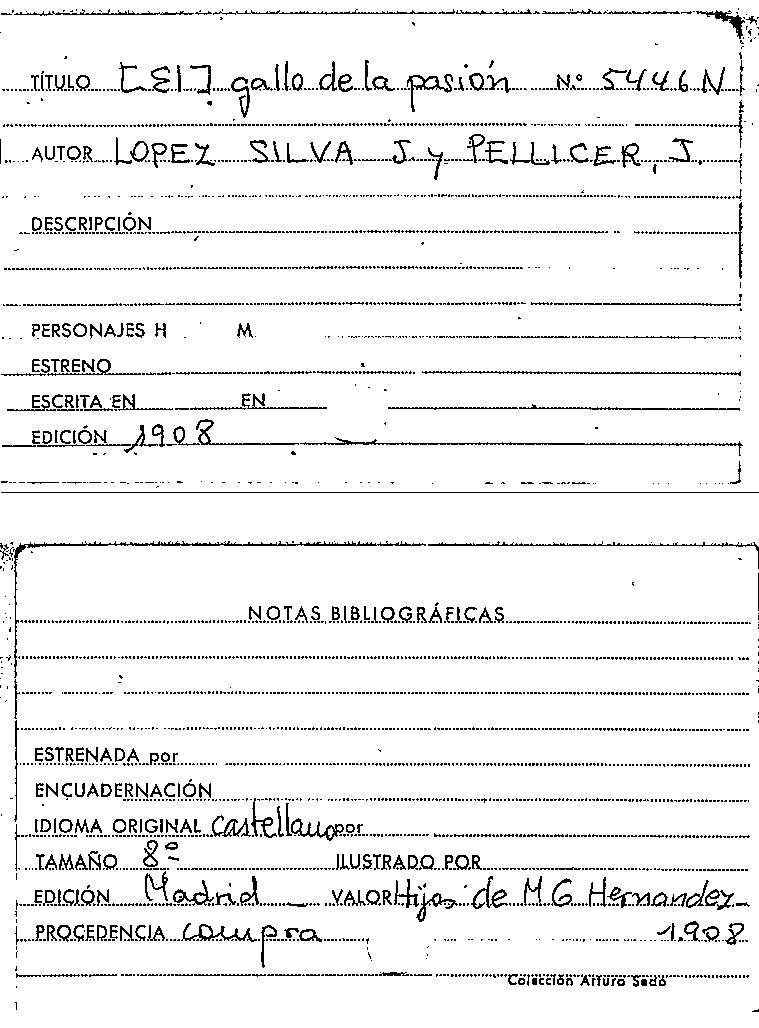 TÍTULO [El] gallo de la pasión N.º 5446 N
AUTOR LOPEZ SILVA J. y PELLICER, J.
DESCRIPCIÓN
PERSONAJES H M.
ESTRENO
ESCRITA EN EN
EDICIÓN 1908
NOTAS BIBLIOGRÁFICAS
ESTRENADA por
ENCUADERNACIÓN
IDIOMA ORIGINAL castellano por
TAMAÑO 8º
ILUSTRADO POR
EDICIÓN Madrid _ VALOR Hijos de M G Hernandez_
PROCEDENCIA compra 1.908
Colección Arturo Sedó